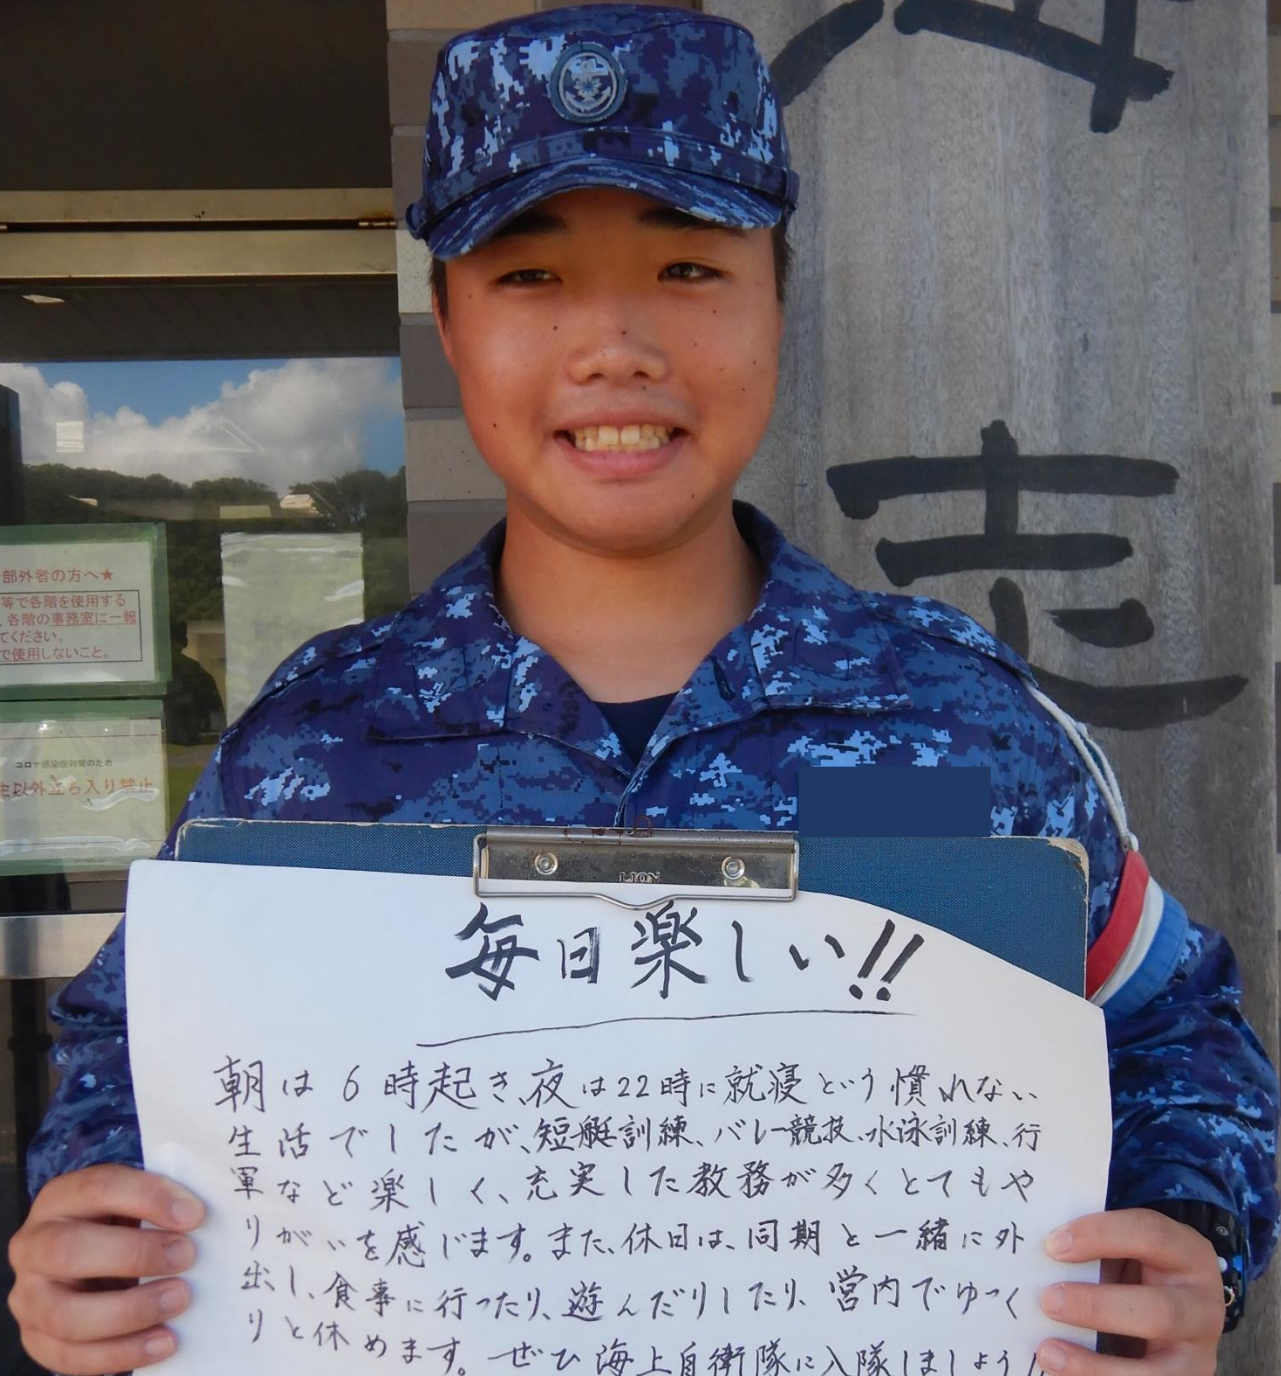 志
部外者の方へ★
等で各階を使用する
各階の事務室に一報
てください。
で使用しないこと。
コロナ感染症対策のため
以外立ち入り禁止
LION
毎日楽しい!!
朝は6時起き、夜は22時に就寝という慣れない
生活でしたが、短艇訓練、バレー競技、水泳訓練、行
軍など楽しく、充実した教務が多くとてもや
りがいを感じます。また、休日は、同期と一緒に外
出し、食事に行ったり、遊んだりしたり、営内でゆっく
りと休めます。ぜひ海上自衛隊に入隊しましょう!!